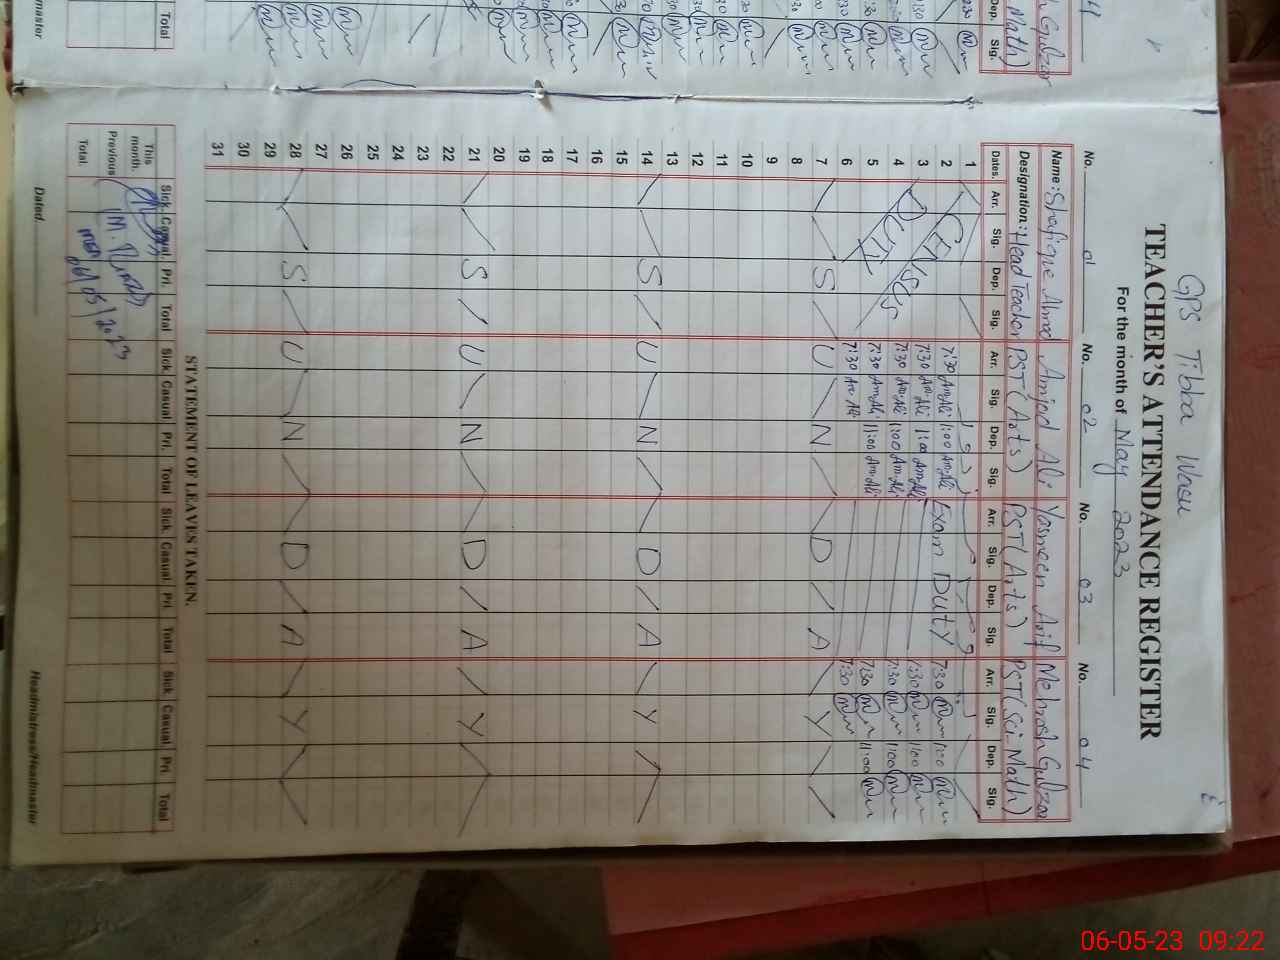 GPS Tibba Wasu
TEACHER'S ATTENDANCE REGISTER
For the month of May 2023
No. 01 No. 02 No. 03 No. 04
Name: Shafique Ahmd Amjad Ali Yasmeen Arif Mehwash Gulzar
Designation: Head Teacher PST (Arts) PST (Arts) PST (Sci. Math)
Dates. Arr. Sig. Dep. Sig. Arr. Sig. Dep. Sig. Arr. Sig. Dep. Sig. Arr. Sig. Dep. Sig.
1
2 7:30 Am-Ali 1:00 Am-Ali Exam Duty 7:30 1:00
3 7:30 Am-Ali 1:00 Am-Ali 7:30 1:00
4 7:30 Am-Ali 1:00 Am-Ali 7:30 1:00
5 7:30 Am-Ali 11:00 Am-Ali 7:30 11:00
6 7:30 Am-Ali 7:30
7 S U N D A Y
8
9
10
11
12
13
14 S U N D A Y
15
16
17
18
19
20
21 S U N D A Y
22
23
24
25
26
27
28 S U N D A Y
29
30
31
STATEMENT OF LEAVES TAKEN.
Sick. Casual. Pri. Total Sick. Casual Pri. Total Sick. Casual Pri. Total Sick Casual Pri Total
This month.
Previous
Total.
06/05/2023
Dated. Headmistress/Headmaster
06-05-23 09:22